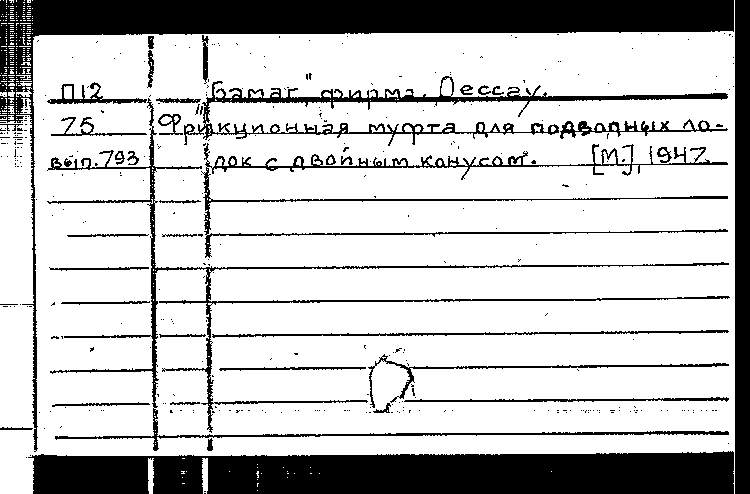 П12 „Бамаг" фирма. Дессау.
75 Фрикционная муфта для подводных ло-
вып.793 док с двойным конусом. [М.], 1947.